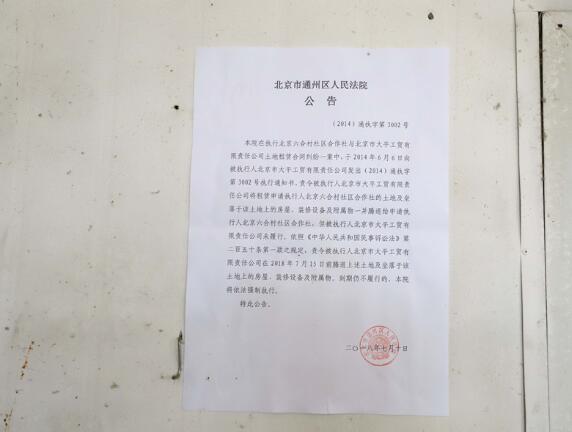 北京市通州区人民法院
公 告
（2014）通执字第 3002 号
本院在执行北京六合村社区合作社与北京市大平工贸有
限责任公司土地租赁合同纠纷一案中，于 2014 年 6 月 6 日向
被执行人北京市大平工贸有限责任公司发出（2014）通执字
第 3002 号执行通知书，责令被执行人北京市大平工贸有限责
任公司将租赁申请执行人北京六合村社区合作社的土地及坐
落于该土地上的房屋、装修设备及附属物一并腾退给申请执
行人北京六合村社区合作社，但被执行人北京市大平工贸有
限责任公司未履行。依照《中华人民共和国民事诉讼法》第
二百五十条第一款之规定，责令被执行人北京市大平工贸有
限责任公司在 2018 年 7 月 15 日前腾退上述土地及坐落于该
土地上的房屋、装修设备及附属物。到期仍不履行的，本院
将依法强制执行。
特此公告。
二〇一八年七月十日